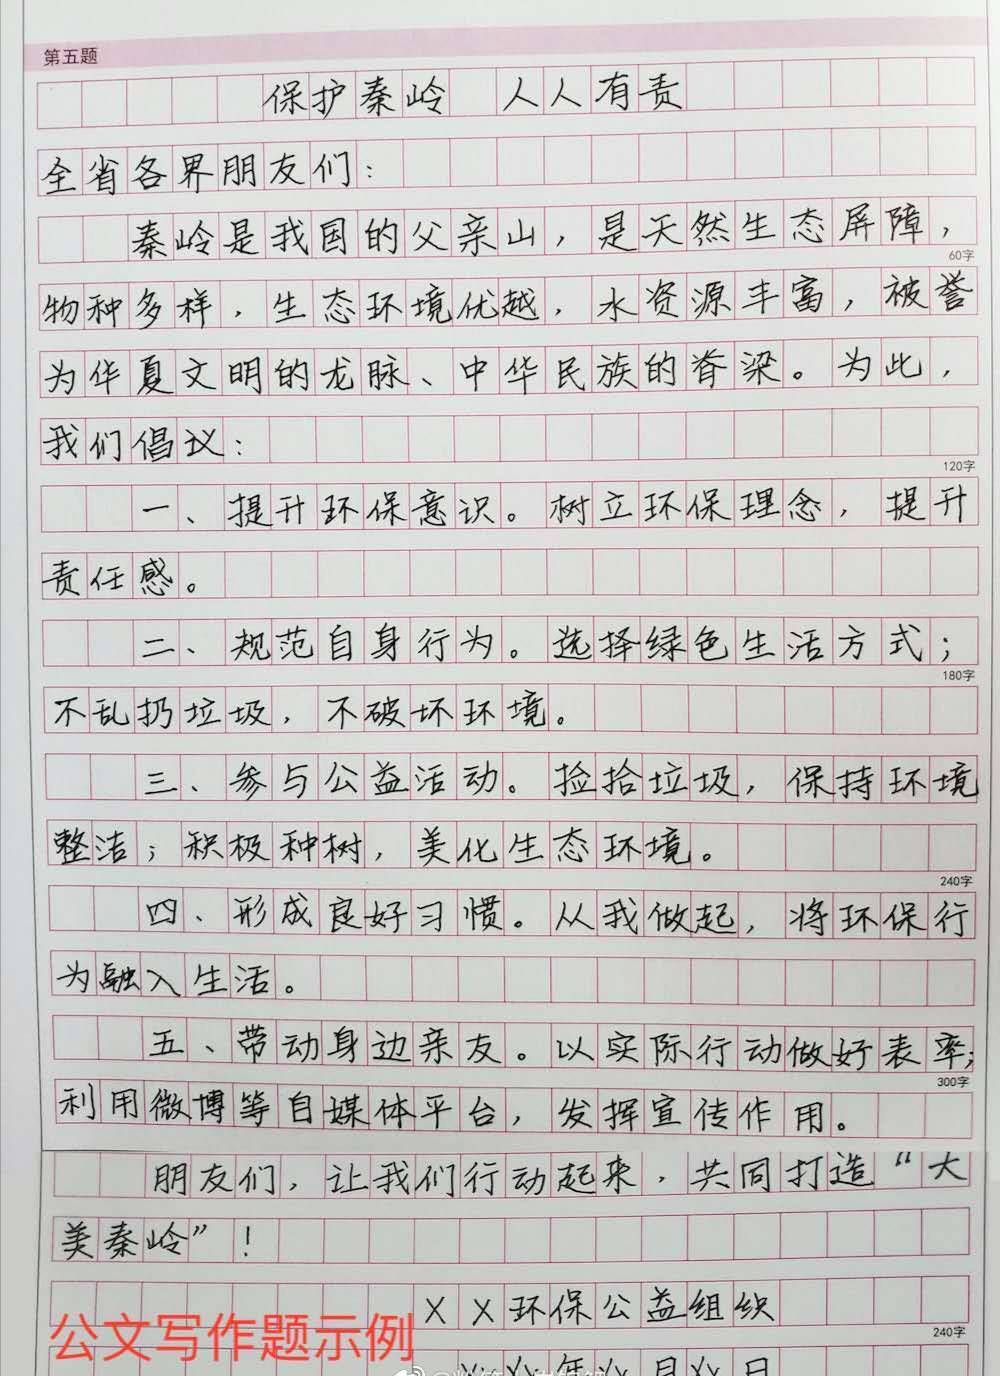 第五题
保护秦岭 人人有责
全省各界朋友们：
秦岭是我国的父亲山，是天然生态屏障，
60字
物种多样，生态环境优越，水资源丰富，被誉
为华夏文明的龙脉、中华民族的脊梁。为此，
我们倡议：
120字
一、提升环保意识。树立环保理念，提升
责任感。
二、规范自身行为。选择绿色生活方式；
180字
不乱扔垃圾，不破坏环境。
三、参与公益活动。捡拾垃圾，保持环境
整洁；积极种树，美化生态环境。
240字
四、形成良好习惯。从我做起，将环保行
为融入生活。
五、带动身边亲友。以实际行动做好表率；
300字
利用微博等自媒体平台，发挥宣传作用。
朋友们，让我们行动起来，共同打造“大
美秦岭”！
××环保公益组织
240字
公文写作题示例
××年××月××日